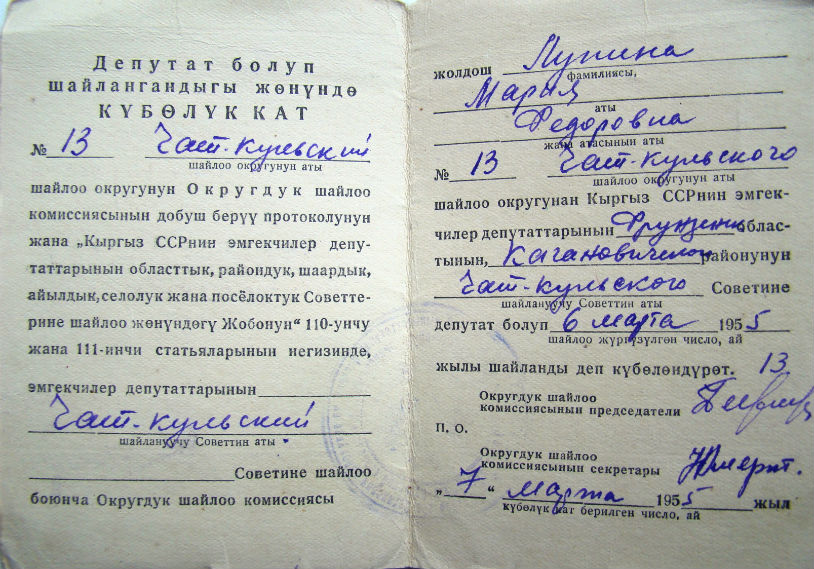 Депутат болуп
шайлангандыгы жөнүндө
КҮБӨЛҮК КАТ
№ 13 Чат-Кульский
шайлоо округунун аты
шайлоо округунун Округдук шайлоо
комиссиясынын добуш берүү протоколунун
жана „Кыргыз ССРнин эмгекчилер депу-
таттарынын областтык, райондук, шаардык,
айылдык, селолук жана посёлоктук Советте-
рине шайлоо жөнүндөгү Жобонун“ 110-унчу
жана 111-инчи статьяларынын негизинде,
эмгекчилер депутаттарынын
Чат-Кульский
шайлануучу Советтин аты
Советине шайлоо
боюнча Округдук шайлоо комиссиясы
жолдош Лупина
фамилиясы,
Мария
аты
Федоровна
жана атасынын аты
№ 13 Чат-Кульского
шайлоо округунун аты
шайлоо округунан Кыргыз ССРнин эмгек-
чилер депутаттарынын Фрунзенск облас-
тынын, Кагановического районунун
Чат-Кульского Советине
шайлануучу Советтин аты
депутат болуп 6 марта 1955
шайлоо жүргүзүлгөн число, ай
жылы шайланды деп күбөлөндүрөт. 13
Округдук шайлоо
комиссиясынын председатели
П. О.
Округдук шайлоо
комиссиясынын секретары
„ 7 “ Марта 1955 жыл
күбөлүк кат берилген число, ай